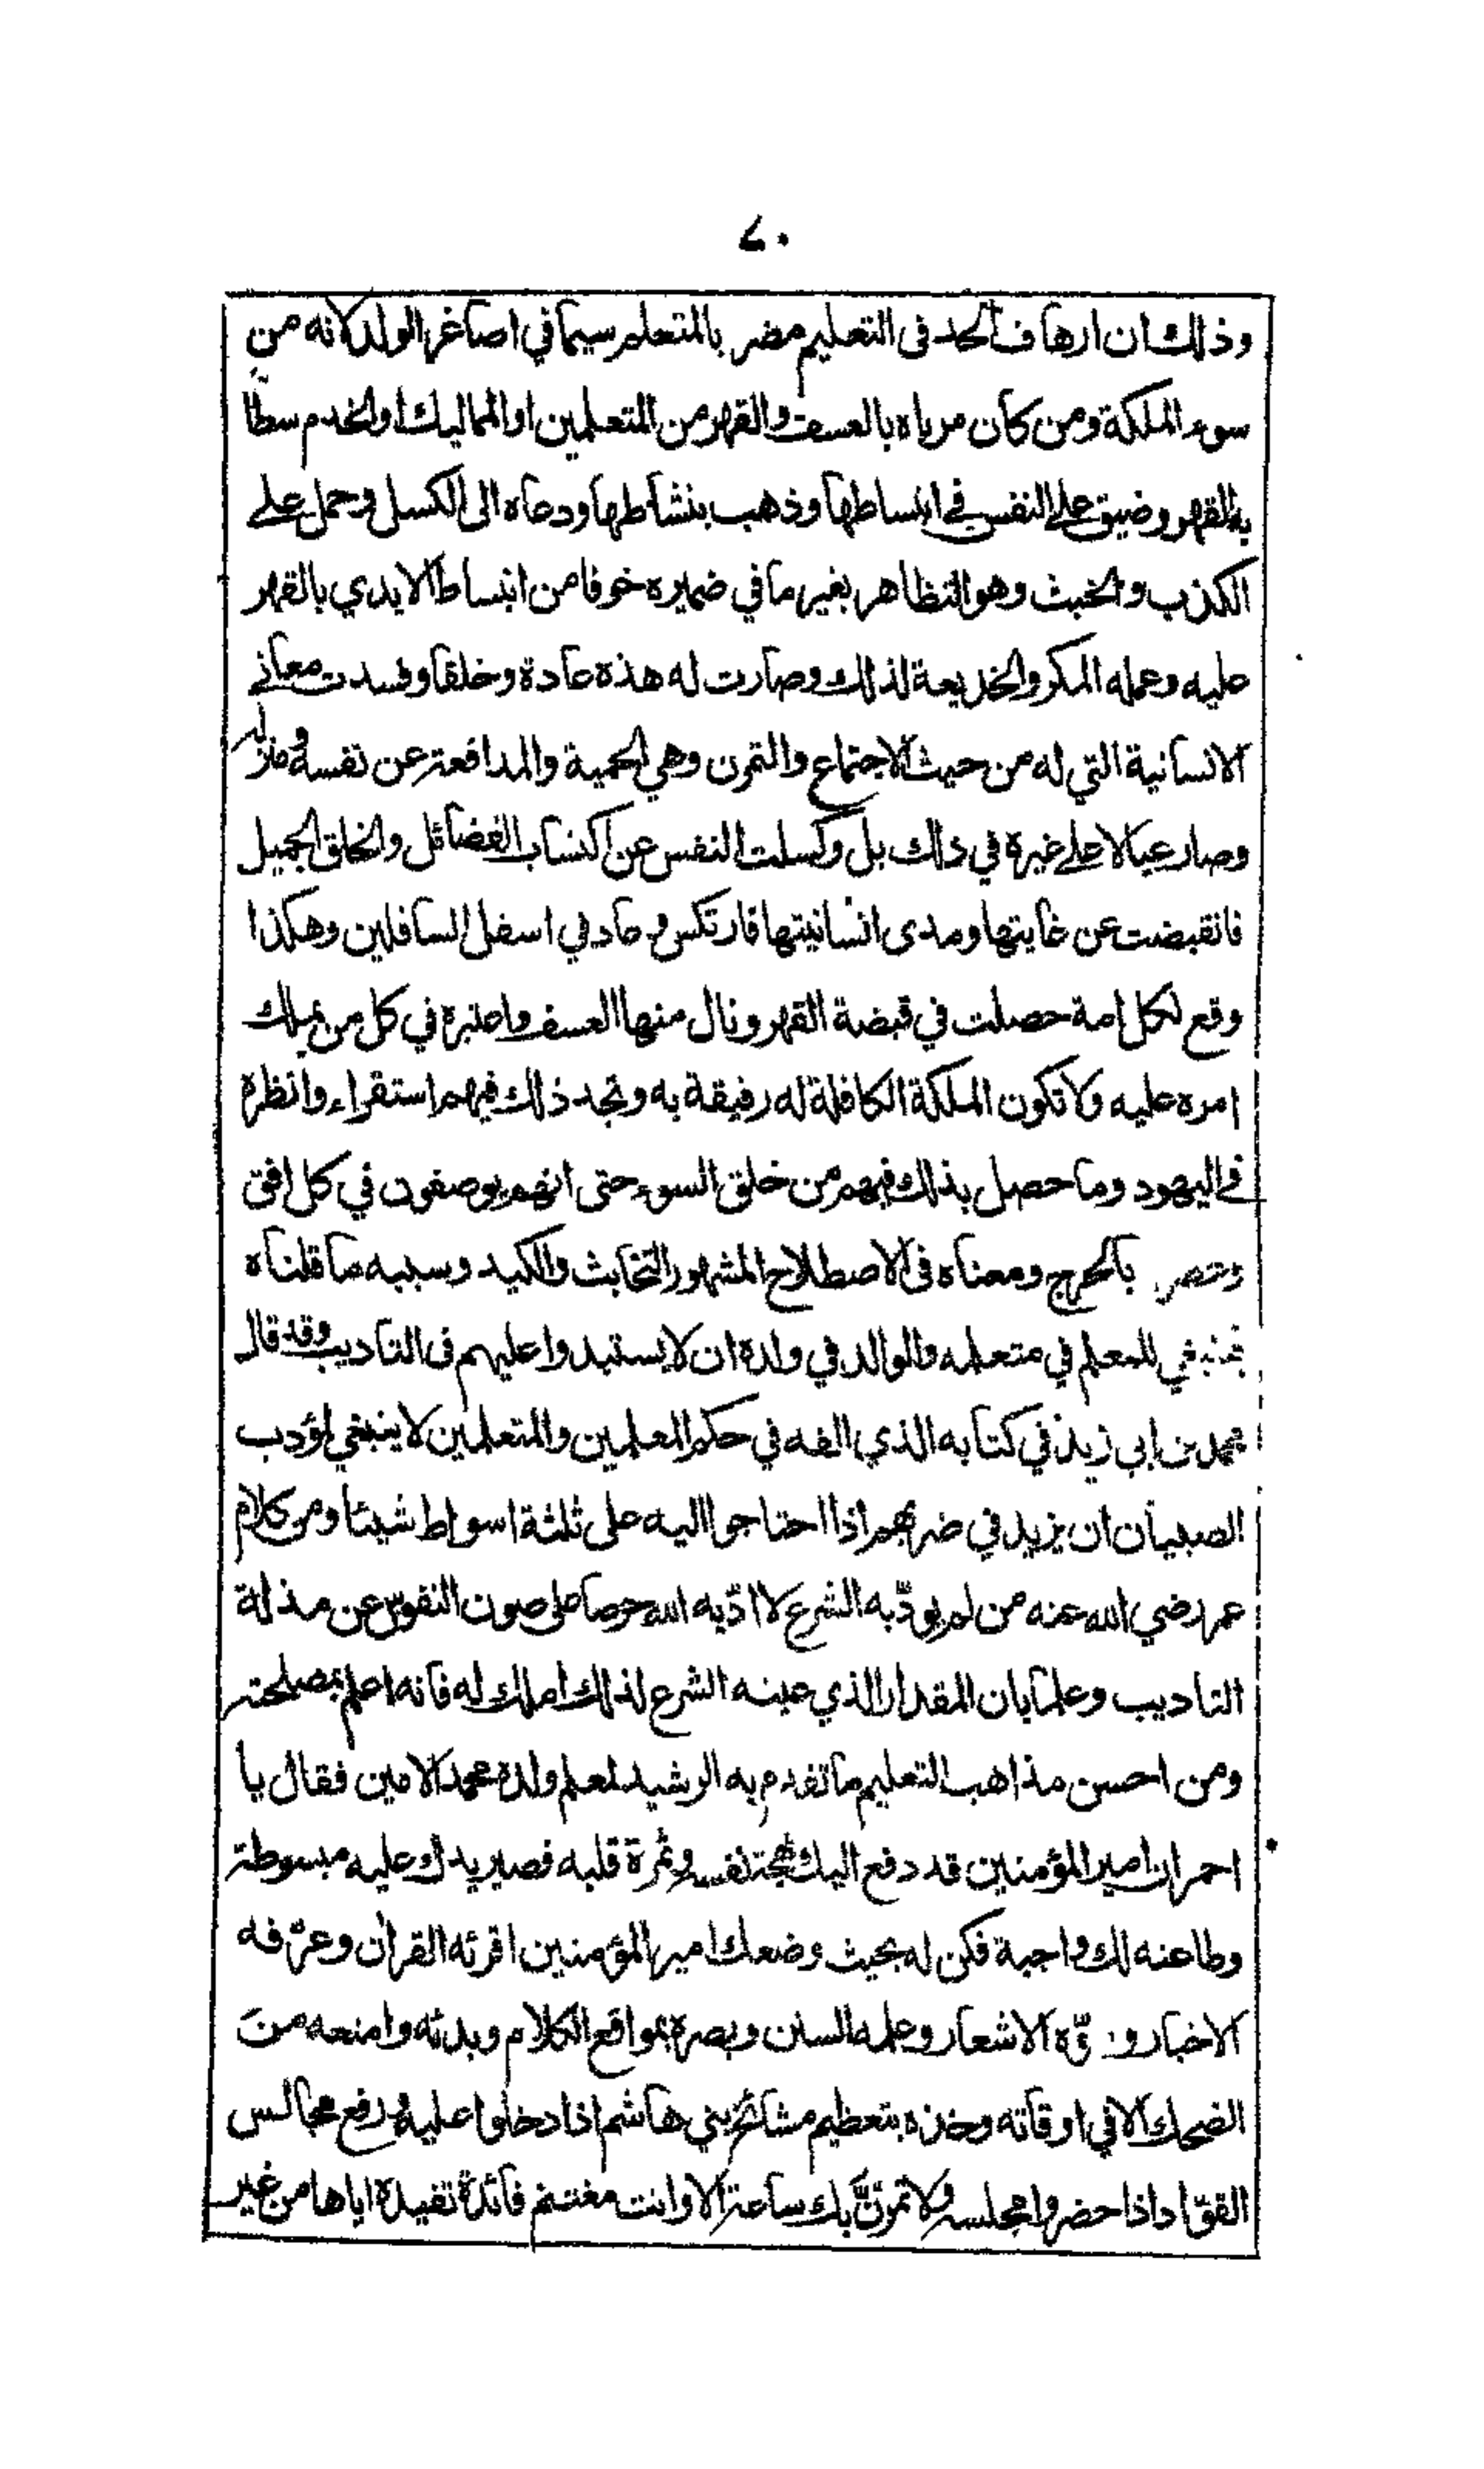 ٤٠
وذلك ان ارهاف الحد في التعليم مضر بالمتعلم سيما في اصاغر الولد لانه من
سوء الملكة ومن كان مرباه بالعسف والقهر من المتعلمين او المماليك او الخدم سطا
به القهر وضيق على النفس في انبساطها وذهب بنشاطها ودعاه الى الكسل وحمل على
الكذب والخبث وهو التظاهر بغير ما في ضميره خوفا من انبساط الايدي بالقهر
عليه وعمله المكر والخديعة لذلك وصارت له هذه عادة وخلقا وفسدت معاني
الانسانية التي له من حيث الاجتماع والتمرن وهي الحمية والمدافعة عن نفسه ومنزله
وصار عيالا على غيره في ذلك بل وكسلت النفس عن اكتساب الفضائل والخلق الجميل
فانقبضت عن غايتها ومدى انسانيتها فارتكس وعاد في اسفل السافلين وهكذا
وقع لكل امة حصلت في قبضة القهر ونال منها العسف واعتبره في كل من يملك
امره عليه ولا تكون الملكة الكافلة له رفيقة به وتجد ذلك فيهم استقراء وانظره
في اليهود وما حصل بذلك فيهم من خلق السوء حتى انهم يوصفون في كل افق
وعصر بالحرج ومعناه في الاصطلاح المشهور التخابث والكيد وسببه ما قلناه
فينبغي للمعلم في متعلمه والوالد في ولده ان لا يستبدوا عليهم في التاديب وقد قال
محمد بن ابي زيد في كتابه الذي الفه في حكم المعلمين والمتعلمين لا ينبغي لمؤدب
الصبيان ان يزيد في ضربهم اذا احتاجوا اليه على ثلثة اسواط شيئا ومن كلام
عمر رضي الله عنه من لم يؤدّبه الشرع لا ادّبه الله حرصا على صون النفوس عن مذلة
التاديب وعلما بان المقدار الذي عينه الشرع لذلك املك له فانه اعلم بمصلحته
ومن احسن مذاهب التعليم ما تقدم به الرشيد لمعلم ولده محمد الامين فقال يا
احمر ان امير المؤمنين قد دفع اليك مهجة نفسه وثمرة قلبه فصير يدك عليه مبسوطة
وطاعته لك واجبة فكن له بحيث وضعك امير المؤمنين اقرئه القران وعرّفه
الاخبار وروّه الاشعار وعلمه السنن وبصره بمواقع الكلام وبدئه وامنعه من
الضحك الا في اوقاته وخذه بتعظيم مشائخ بني هاشم اذا دخلوا عليه ورفع مجالس
القوّاد اذا حضروا مجلسه ولا تمرنّ بك ساعة الا وانت مغتنم فائدة تفيده اياها من غير